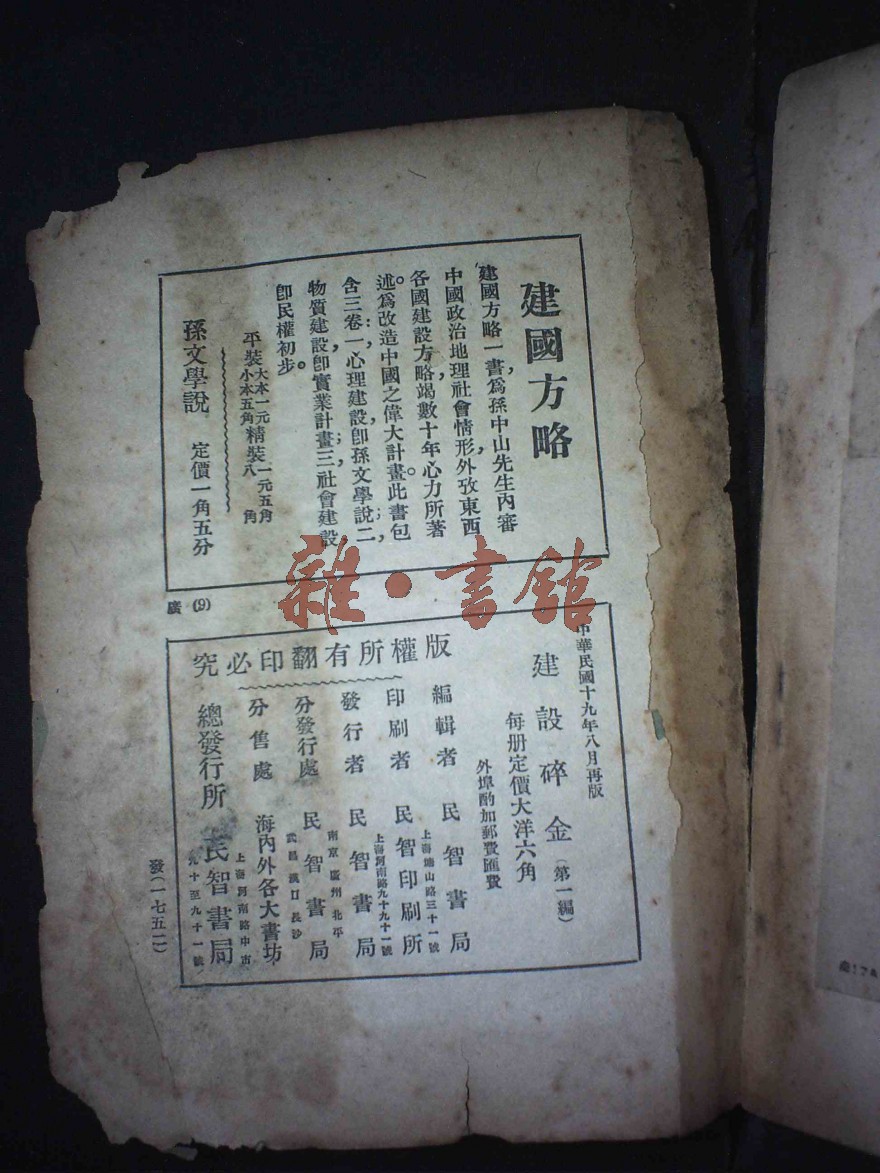 建國方略
建國方略一書，爲孫中山先生內審
中國政治地理社會情形，外攷東西
各國建設方略，竭數十年心力所著
述。爲改造中國之偉大計畫。此書包
含三卷：一，心理建設，卽孫文學說；二，
物質建設，卽實業計畫；三，社會建設，
卽民權初步。
平裝大本一元小本五角精裝一元五角八角
孫文學說 定價一角五分
廣(9)
雜·書館
中華民國十九年八月再版
建設碎金(第一編)
每册定價大洋六角
外埠酌加郵費匯費
版權所有翻印必究
編輯者 民智書局
上海 山路三十一號
印刷者 民智印刷所
上海河南路九十九十一號
發行者 民智書局
南京 廣州 北平
分發行處 民智書局
武昌 漢口 長沙
分售處 海內外各大書坊
上海河南路中市
九十至九十一號
總發行所 民智書局
發(一七五二)